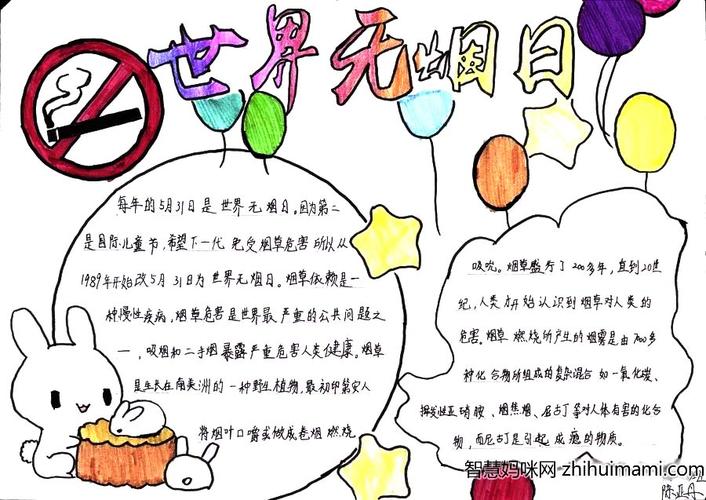 世界无烟日
每年的5月31日是世界无烟日。因为第二
是国际儿童节,希望下一代免受烟草危害所以从
1989年开始改5月31日为世界无烟日。烟草依赖是一
种慢性疾病,烟草危害是世界最严重的公共问题之
一,吸烟和二手烟暴露严重危害人类健康。烟草
是生长在南美洲的一种野生植物,最初印第安人
将烟叶口嚼或做成卷烟燃烧
吸吮。烟草盛行了200多年,直到20世
纪,人类才开始认识到烟草对人类的
危害。烟草燃烧所产生的烟雾是由700多
种化合物所组成的复杂混合如一氧化碳、
挥发性亚硝胺、烟焦烟、尼古丁等对人体有害的化合
物,而尼古丁是引起成瘾的物质。
智慧妈咪网 zhihuimami.com